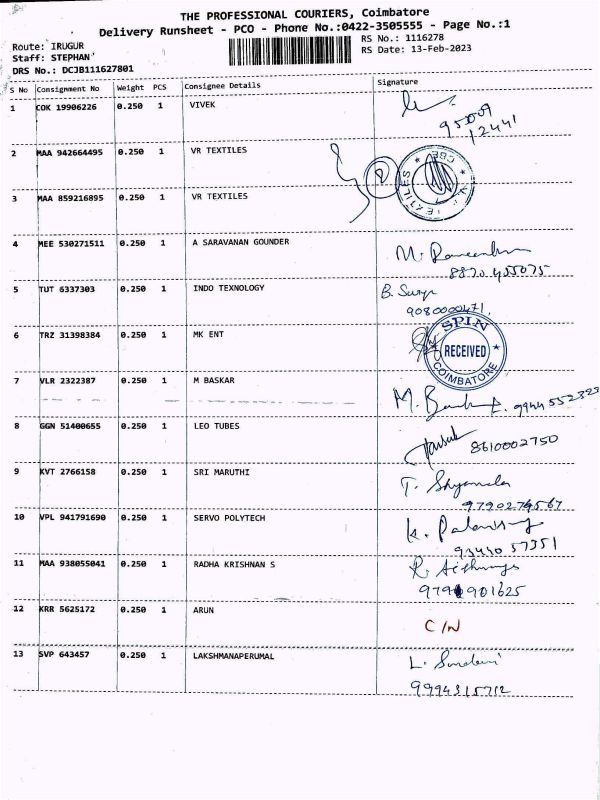 THE PROFESSIONAL COURIERS, Coimbatore
Delivery Runsheet - PCO - Phone No.:0422-3505555 - Page No.:1
Route: IRUGUR
RS No.: 1116278
Staff: STEPHAN
RS Date: 13-Feb-2023
DRS No.: DCJB111627801
S No Consignment No Weight PCS Consignee Details Signature
1 COK 19906226 0.250 1 VIVEK
95009
12441
2 MAA 942664495 0.250 1 VR TEXTILES
3 MAA 859216895 0.250 1 VR TEXTILES
4 MEE 530271511 0.250 1 A SARAVANAN GOUNDER
8870 455075
5 TUT 6337303 0.250 1 INDO TEXNOLOGY B. Surya
9080000471
6 TRZ 31398384 0.250 1 MK ENT SPIN RECEIVED COIMBATORE
7 VLR 2322387 0.250 1 M BASKAR
M. 9944 552323
8 GGN 51400655 0.250 1 LEO TUBES
8610002750
9 KVT 2766158 0.250 1 SRI MARUTHI
T. Shyamala
9790274567
10 VPL 941791690 0.250 1 SERVO POLYTECH
57351
11 MAA 938055041 0.250 1 RADHA KRISHNAN S
901625
12 KRR 5625172 0.250 1 ARUN
C/N
13 SVP 643457 0.250 1 LAKSHMANAPERUMAL
9994315712